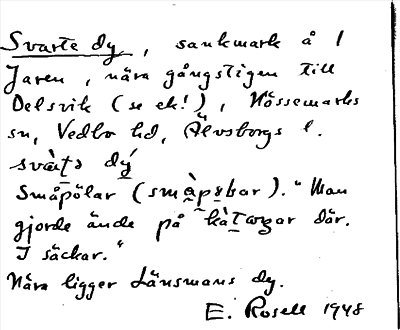 Svarte dy, sankmark å /
Jaren, nära gångstigen till
Delsvik (se ek!), Nössemarks
sn, Vedbo hd, Älvsborgs l.
svàʈə dý
Småpölar (smàpøɭar). "Man
gjorde ände på kàʈoŋar där.
I säckar."
Nära ligger Länsmans dy.
E. Rosell 1948